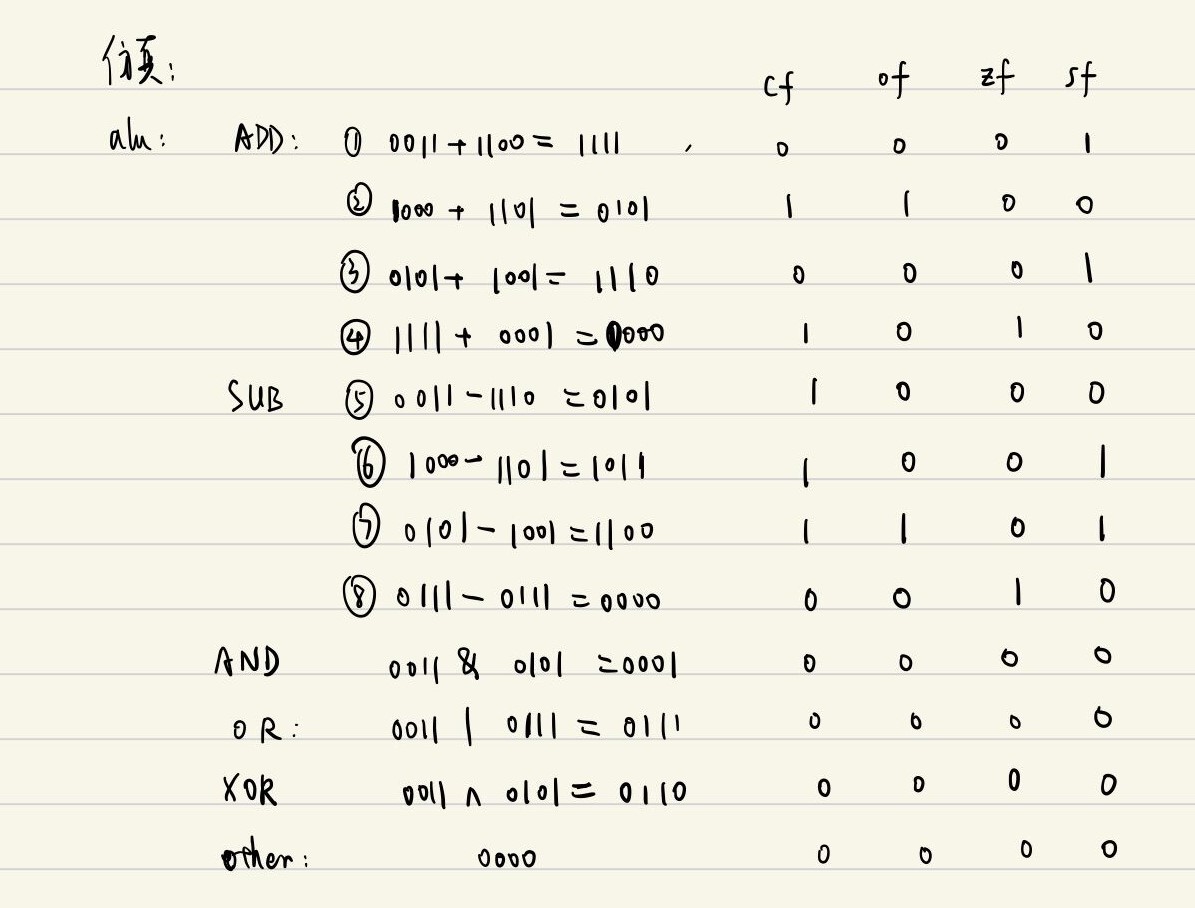 仿真:
cf of zf sf
alu: ADD: ① 0011 + 1100 = 1111 0 0 0 1
② 1000 + 1101 = 0101 1 1 0 0
③ 0101 + 1001 = 1110 0 0 0 1
④ 1111 + 0001 = 0000 1 0 1 0
SUB ⑤ 0011 - 1110 = 0101 1 0 0 0
⑥ 1000 - 1101 = 1011 1 0 0 1
⑦ 0101 - 1001 = 1100 1 1 0 1
⑧ 0111 - 0111 = 0000 0 0 1 0
AND 0011 & 0101 = 0001 0 0 0 0
OR: 0011 | 0111 = 0111 0 0 0 0
XOR 0011 ∧ 0101 = 0110 0 0 0 0
other: 0000 0 0 0 0